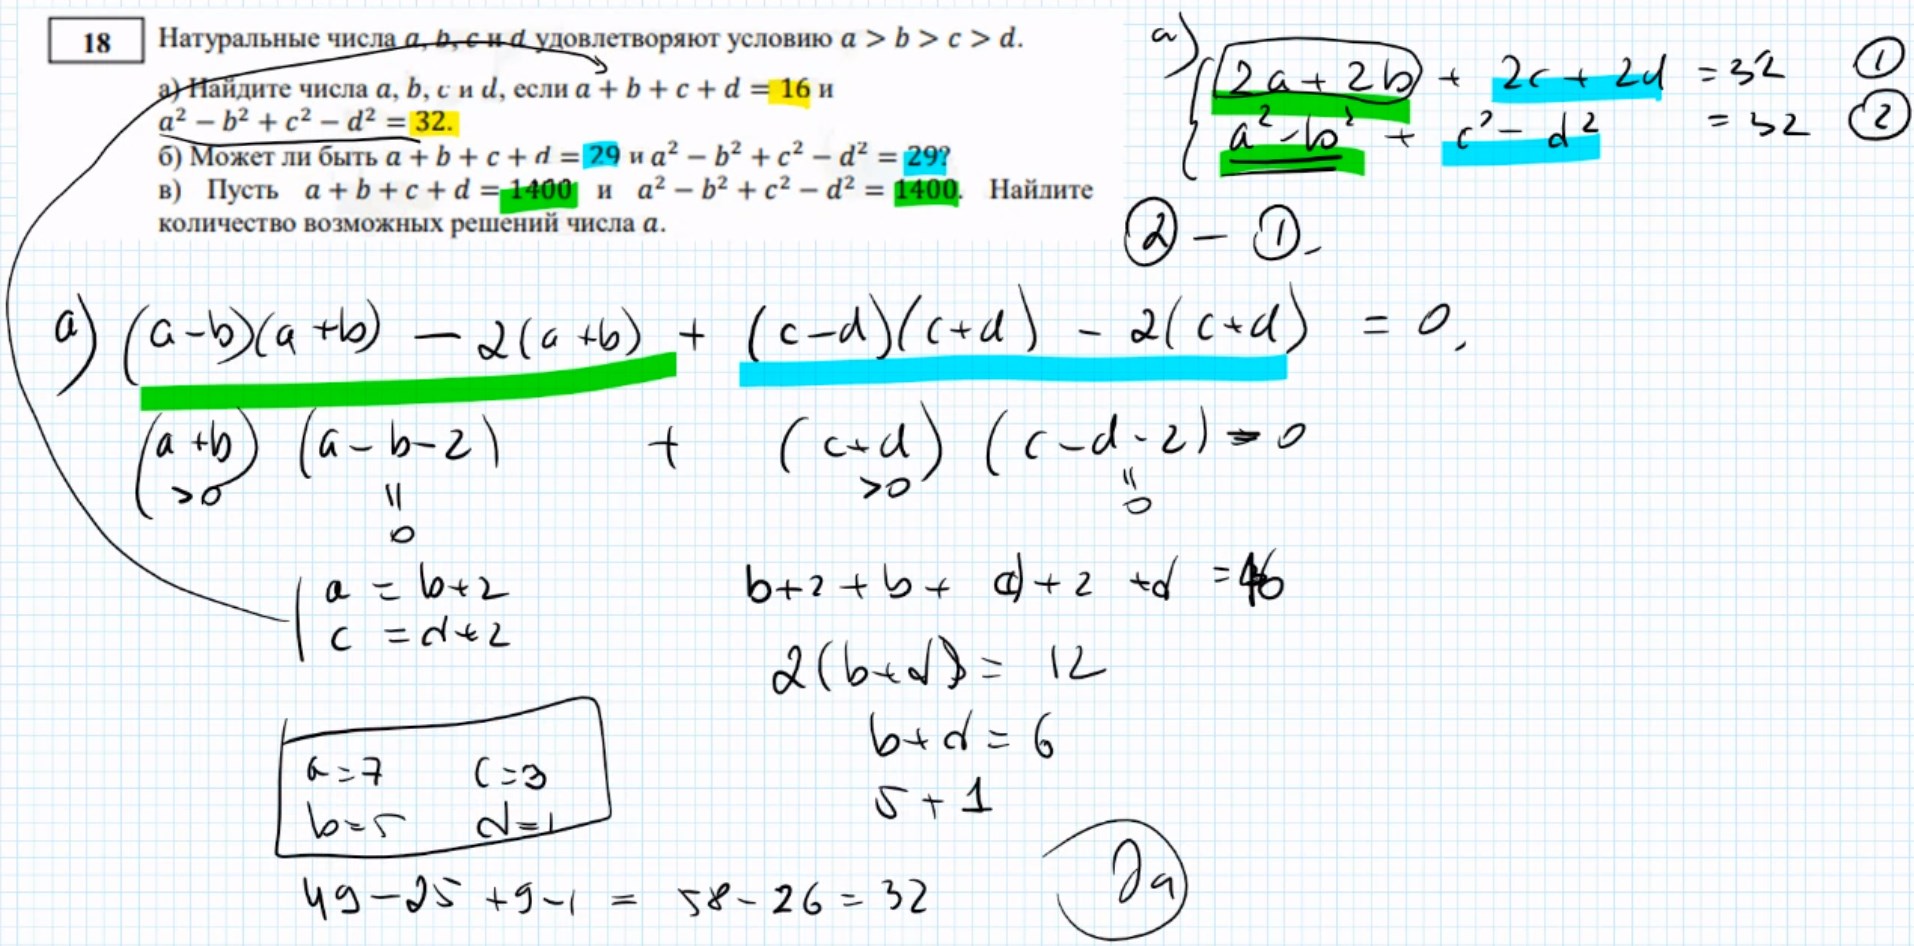 18
Натуральные числа a, b, c и d удовлетворяют условию a > b > c > d.
а) Найдите числа a, b, c и d, если a + b + c + d = 16 и
a² − b² + c² − d² = 32.
б) Может ли быть a + b + c + d = 29 и a² − b² + c² − d² = 29?
в) Пусть a + b + c + d = 1400 и a² − b² + c² − d² = 1400. Найдите
количество возможных решений числа a.
а)
2a + 2b + 2c + 2d = 32 ①
a² − b² + c² − d² = 32 ②
② − ①.
а) (a−b)(a+b) − 2(a+b) + (c−d)(c+d) − 2(c+d) = 0,
(a+b) (a−b−2) + (c+d) (c−d−2) = 0
>0 = 0 >0 = 0
a = b+2
c = d+2
b+2+b+d+2+d = 16
2(b+d) = 12
b+d = 6
5+1
a=7 c=3
b=5 d=1
49−25+9−1 = 58−26 = 32
Да